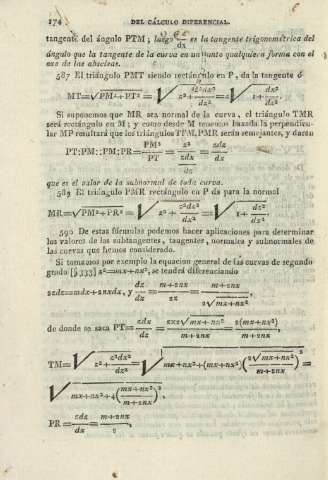 174 DEL CÁLCULO DIFERENCIAL.
tangente del ángulo PTM; luego dz/dx es la tangente trigonométrica del
ángulo que la tangente de la curva en un punto qualquiera forma con el
exe de las abscisas.
587 El triángulo PMT siendo rectángulo en P, da la tangente ó
MT=√PM²+PT² = √z²+ z²dx²/dz² = z√1+ dx²/dz².
Si suponemos que MR sea normal de la curva, el triángulo TMR
será rectángulo en M; y como desde M tenemos baxada la perpendicu-
lar MP resultará que los triángulos TPM, PMR serán semejantes, y darán
PT:PM::PM:PR= PM²/PT = z²/(zdx/dz) = zdz/dx
que es el valor de la subnormal de toda curva.
589 El triángulo PMR rectángulo en P da para la normal
MR=√PM²+PR² = √z²+ z²dz²/dx² = z√1+ dz²/dx².
590 De estas fórmulas podemos hacer aplicaciones para determinar
los valores de las subtangentes, tangentes, normales y subnormales de
las curvas que hemos considerado.
Si tomamos por exemplo la equacion general de las curvas de segundo
grado [§ 333] z²=mx+nx², se tendrá diferenciando
2zdz=mdx+2nxdx, y dz/dx = (m+2nx)/2z = (m+2nx)/(2√mx+nx²),
de donde se saca PT= zdx/dz = (2z√mx+nx²)/(m+2nx) = 2(mx+nx²)/(m+2nx),
TM=√z²+ z²dx²/dz² = √mx+nx²+(mx+nx²)(2√mx+nx²/(m+2nx))² =
√mx+nx²+4((mx+nx²)/(m+2nx))²,
PR = zdz/dx = (m+2nx)/2,